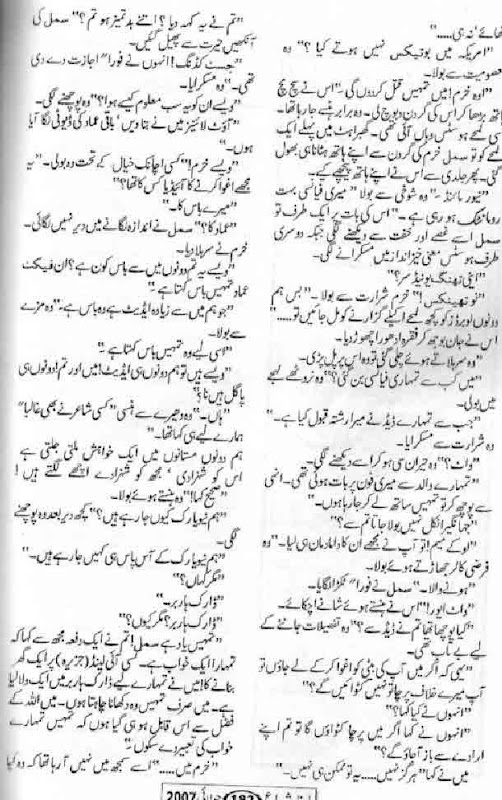 کھائے نہ ہی.....
"امریکہ میں بوتیکس نہیں ہوتے کیا؟" وہ
معصومیت سے بولا۔
"اوہ خرم! میں تمہیں قتل کردوں گی۔" اس نے سچ مچ
ہاتھ بڑھا کر اس کی گردن دبوچ لی۔ وہ برابر ہنسے جارہا تھا۔
ہوسٹس وہاں آئی تھی۔ گھبراہٹ میں پہلے ایک
لمحے کو تو سمل خرم کی گردن سے اپنے ہاتھ ہٹانا ہی بھول
گئی۔ پھر جلدی سے اس نے اپنے ہاتھ پیچھے کیے۔
"نیور مائنڈ۔" وہ شوخی سے بولا "میری فیانسی بہت
رومانٹک ہو رہی ہے۔" اس کی بات پر ایک طرف تو
سمل اسے غصے اور خفت سے دیکھنے لگی جبکہ دوسری
طرف ہوسٹس معنی خیز انداز میں مسکرانے لگی۔
"اینی تھنگ یو نیڈ سر؟"
"نو تھینکس!" خرم شرارت سے بولا۔ "بس ہم
دونوں کو کچھ لمحے اکیلے گزارنے کو مل جائیں تو....."
اس نے جان بوجھ کر فقرہ ادھورا چھوڑ دیا۔
وہ سر ہلاتے ہوئے چلی گئی تو وہ اس پر پل پڑی۔
"میں کب سے تمہاری فیانسی بن گئی؟" وہ نروٹھے لہجے
میں بولی۔
"جب سے تمہارے ڈیڈ نے میرا رشتہ قبول کیا ہے۔"
وہ شرارت سے مسکرایا۔
"واٹ؟" وہ حیران سی ہو کر اسے دیکھنے لگی۔
"تمہارے والد سے میری فون پر بات ہوئی تھی۔ انھی
سے پوچھ کر تو تمہیں ساتھ لے کر جارہا ہوں۔"
"جہانگیر انکل نہیں بولا جاتا تم سے؟"
"اوکے میم! تو آپ نے مجھے ان کا داماد مان ہی لیا۔" وہ
فرضی کالر جھاڑتے ہوئے بولا۔
"ہونے والا۔" سمل نے فورا" ٹکڑا لگایا۔
"واٹ ایور!" اس نے ہنستے ہوئے شانے اچکائے۔
"کیا پوچھا تھا تم نے ڈیڈ سے؟" وہ تفصیلات جاننے کے
لیے بے تاب تھی۔
"یہی کہ اگر میں آپ کی بیٹی کو اغوا کر کے لے جاؤں تو
آپ میرے خلاف پرچا تو نہیں کٹوائیں گے؟"
"انہوں نے کیا کہا؟"
"انہوں نے کہا اگر میں پرچا کٹواؤں گا تو تم اپنے
ارادے سے باز آجاؤ گے؟"
میں نے کہا "ہرگز نہیں.... یہ تو ممکن ہی نہیں۔"
"تم نے یہ کہہ دیا؟ اتنے بدتمیز ہو تم؟" سمل کی
آنکھیں حیرت سے پھیل گئیں۔
"جسٹ کڈنگ! انہوں نے فورا" اجازت دے دی
تھی۔" وہ مسکرایا۔
"ویسے ان کو یہ سب معلوم کیسے ہوا؟" وہ پوچھنے لگی۔
"آؤٹ لائنز میں نے بتا دیں، باقی عماد کی ڈیوٹی لگا آیا
ہوں۔"
"ویسے خرم!" کسی اچانک خیال کے تحت وہ بولی۔ "یہ
مجھے اغوا کرنے کا آئیڈیا کس کا تھا؟"
"میرے باس کا۔"
"عماد کا؟" سمل نے اندازہ لگانے میں دیر نہیں لگائی۔
خرم نے سر ہلا دیا۔
"ویسے یہ تم دونوں میں سے باس کون ہے؟ ان فیکٹ
عماد تمہیں باس کہتا ہے۔"
"جو ہم میں سے زیادہ ایڈیٹ ہے وہ باس ہے۔" وہ مزے
سے بولا۔
"اسی لیے وہ تمہیں باس کہتا ہے۔"
"ویسے ہیں تو ہم دونوں ہی ایڈیٹ! میں اور تم! دونوں ہی
پاگل ہیں نا؟"
"ہاں۔" وہ دھیرے سے ہنسی "کسی شاعر نے بھی غالبا"
ہمارے لیے ہی کہا تھا۔"
ہم دونوں مستانوں میں ایک خواہش ملتی جلتی ہے
اس کو شہزادی، مجھ کو شہزادے اچھے لگتے ہیں!
"صحیح کہا!" وہ ہنستے ہوئے بولا۔
"ہم نیویارک کیوں جارہے ہیں؟" کچھ دیر بعد وہ پوچھنے
لگی۔
"ہم نیویارک کے آس پاس ہی کہیں جارہے ہیں۔"
"مگر کہاں؟"
"ڈارک ہاربر۔"
"ڈارک ہاربر؟ مگر کیوں؟"
"تمہیں یاد ہے سمل! تم نے ایک دفعہ مجھ سے کہا کہ
تمہارا ایک خواب ہے۔ کسی آئی لینڈ (جزیرہ) پر ایک گھر
بنانے کا! میں نے تمہارے لیے ڈارک ہاربر میں ایک ولا لیا
ہے۔ میں صرف تمہیں وہ دکھانا چاہتا ہوں۔ میں اللہ کے
فضل سے اس قابل ہو ہی گیا ہوں کہ تمہیں تمہارے
خواب کی تعبیر دے سکوں۔"
"خرم میں....." اسے سمجھ میں نہیں آرہا تھا کہ وہ کیا
شعاع 183 جولائی 2007